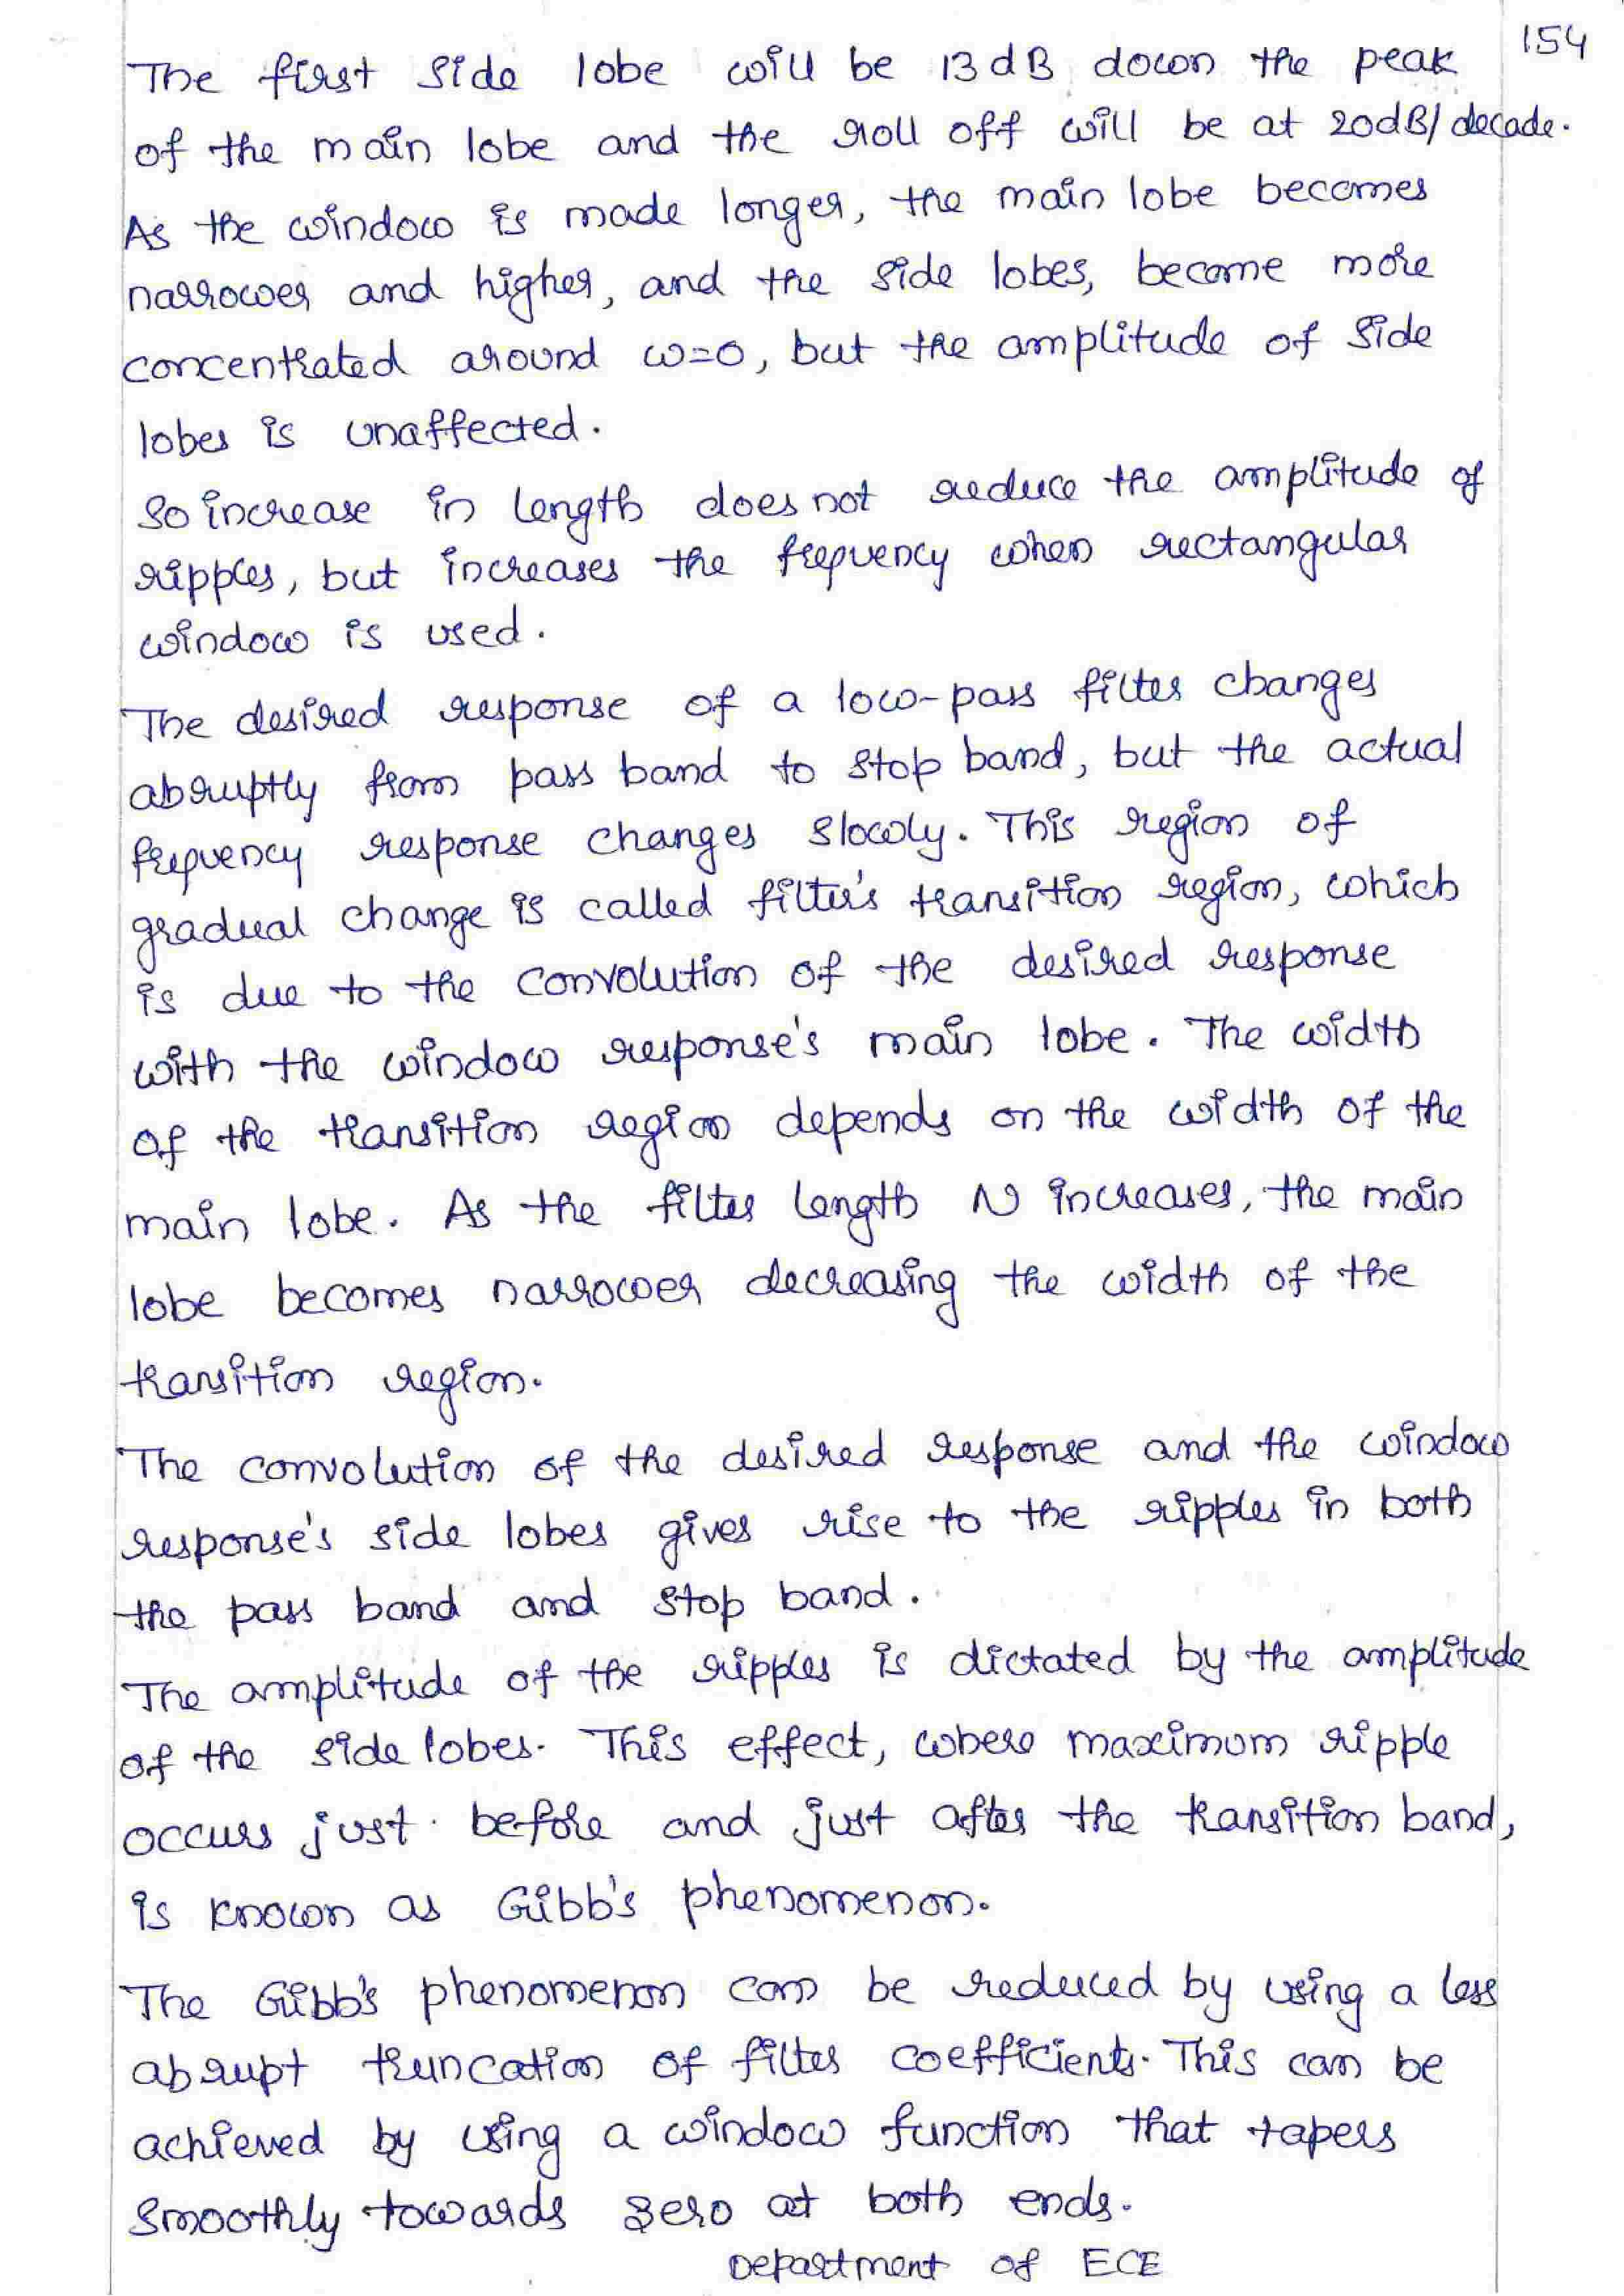 154
The first side lobe will be 13 dB down the peak
of the main lobe and the roll off will be at 20dB/decade.
As the window is made longer, the main lobe becomes
narrower and higher, and the side lobes, become more
concentrated around ω=0, but the amplitude of side
lobes is unaffected.
So increase in length does not reduce the amplitude of
ripples, but increases the frequency when rectangular
window is used.
The desired response of a low-pass filter changes
abruptly from pass band to stop band, but the actual
frequency response changes slowly. This region of
gradual change is called filter's transition region, which
is due to the convolution of the desired response
with the window response's main lobe. The width
of the transition region depends on the width of the
main lobe. As the filter length N increases, the main
lobe becomes narrower decreasing the width of the
transition region.
The convolution of the desired response and the window
response's side lobes gives rise to the ripples in both
the pass band and stop band.
The amplitude of the ripples is dictated by the amplitude
of the side lobes. This effect, where maximum ripple
occurs just before and just after the transition band,
is known as Gibb's phenomenon.
The Gibb's phenomenon can be reduced by using a less
abrupt truncation of filter coefficients. This can be
achieved by using a window function that tapers
smoothly towards zero at both ends.
Department of ECE